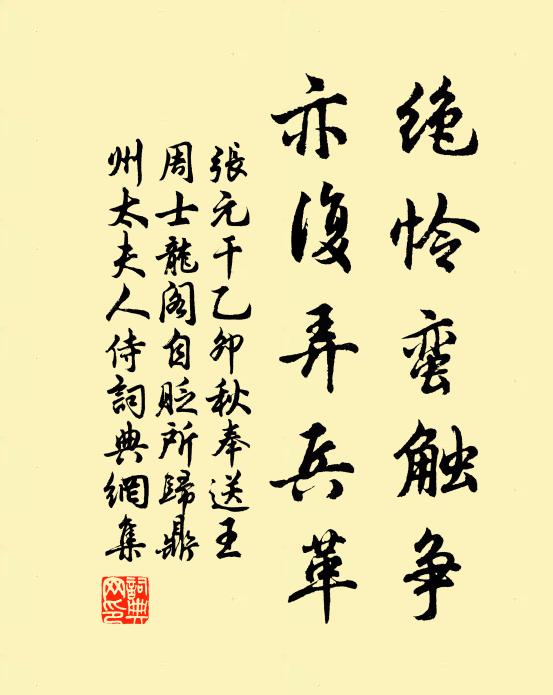 绝怜蛮触争
亦復弄兵革
張元干乙卯秋奉送王
周士龍阁自贬所歸鼎
州太夫人侍詞典網集
詞典
网印